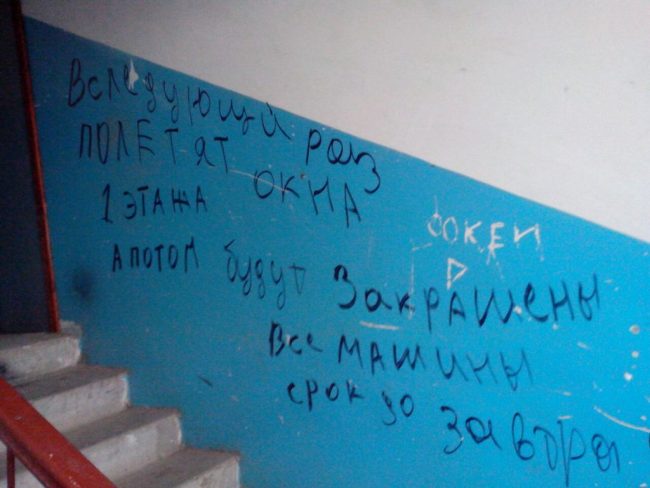 Вследующий раз
ПОЛЕТЯТ ОКНА
1 ЭТАЖА
А ПОТОМ будут ЗакРАШЕНЫ
Все МАШИНЫ
срок до завтра
ОКЕЙ